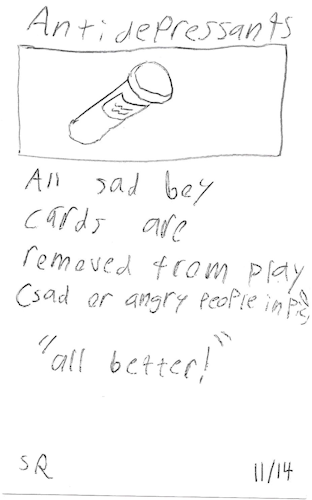 Antidepressants
All sad boy
cards are
removed from play
(sad or angry people in pic)
"all better!"
SR 11/14